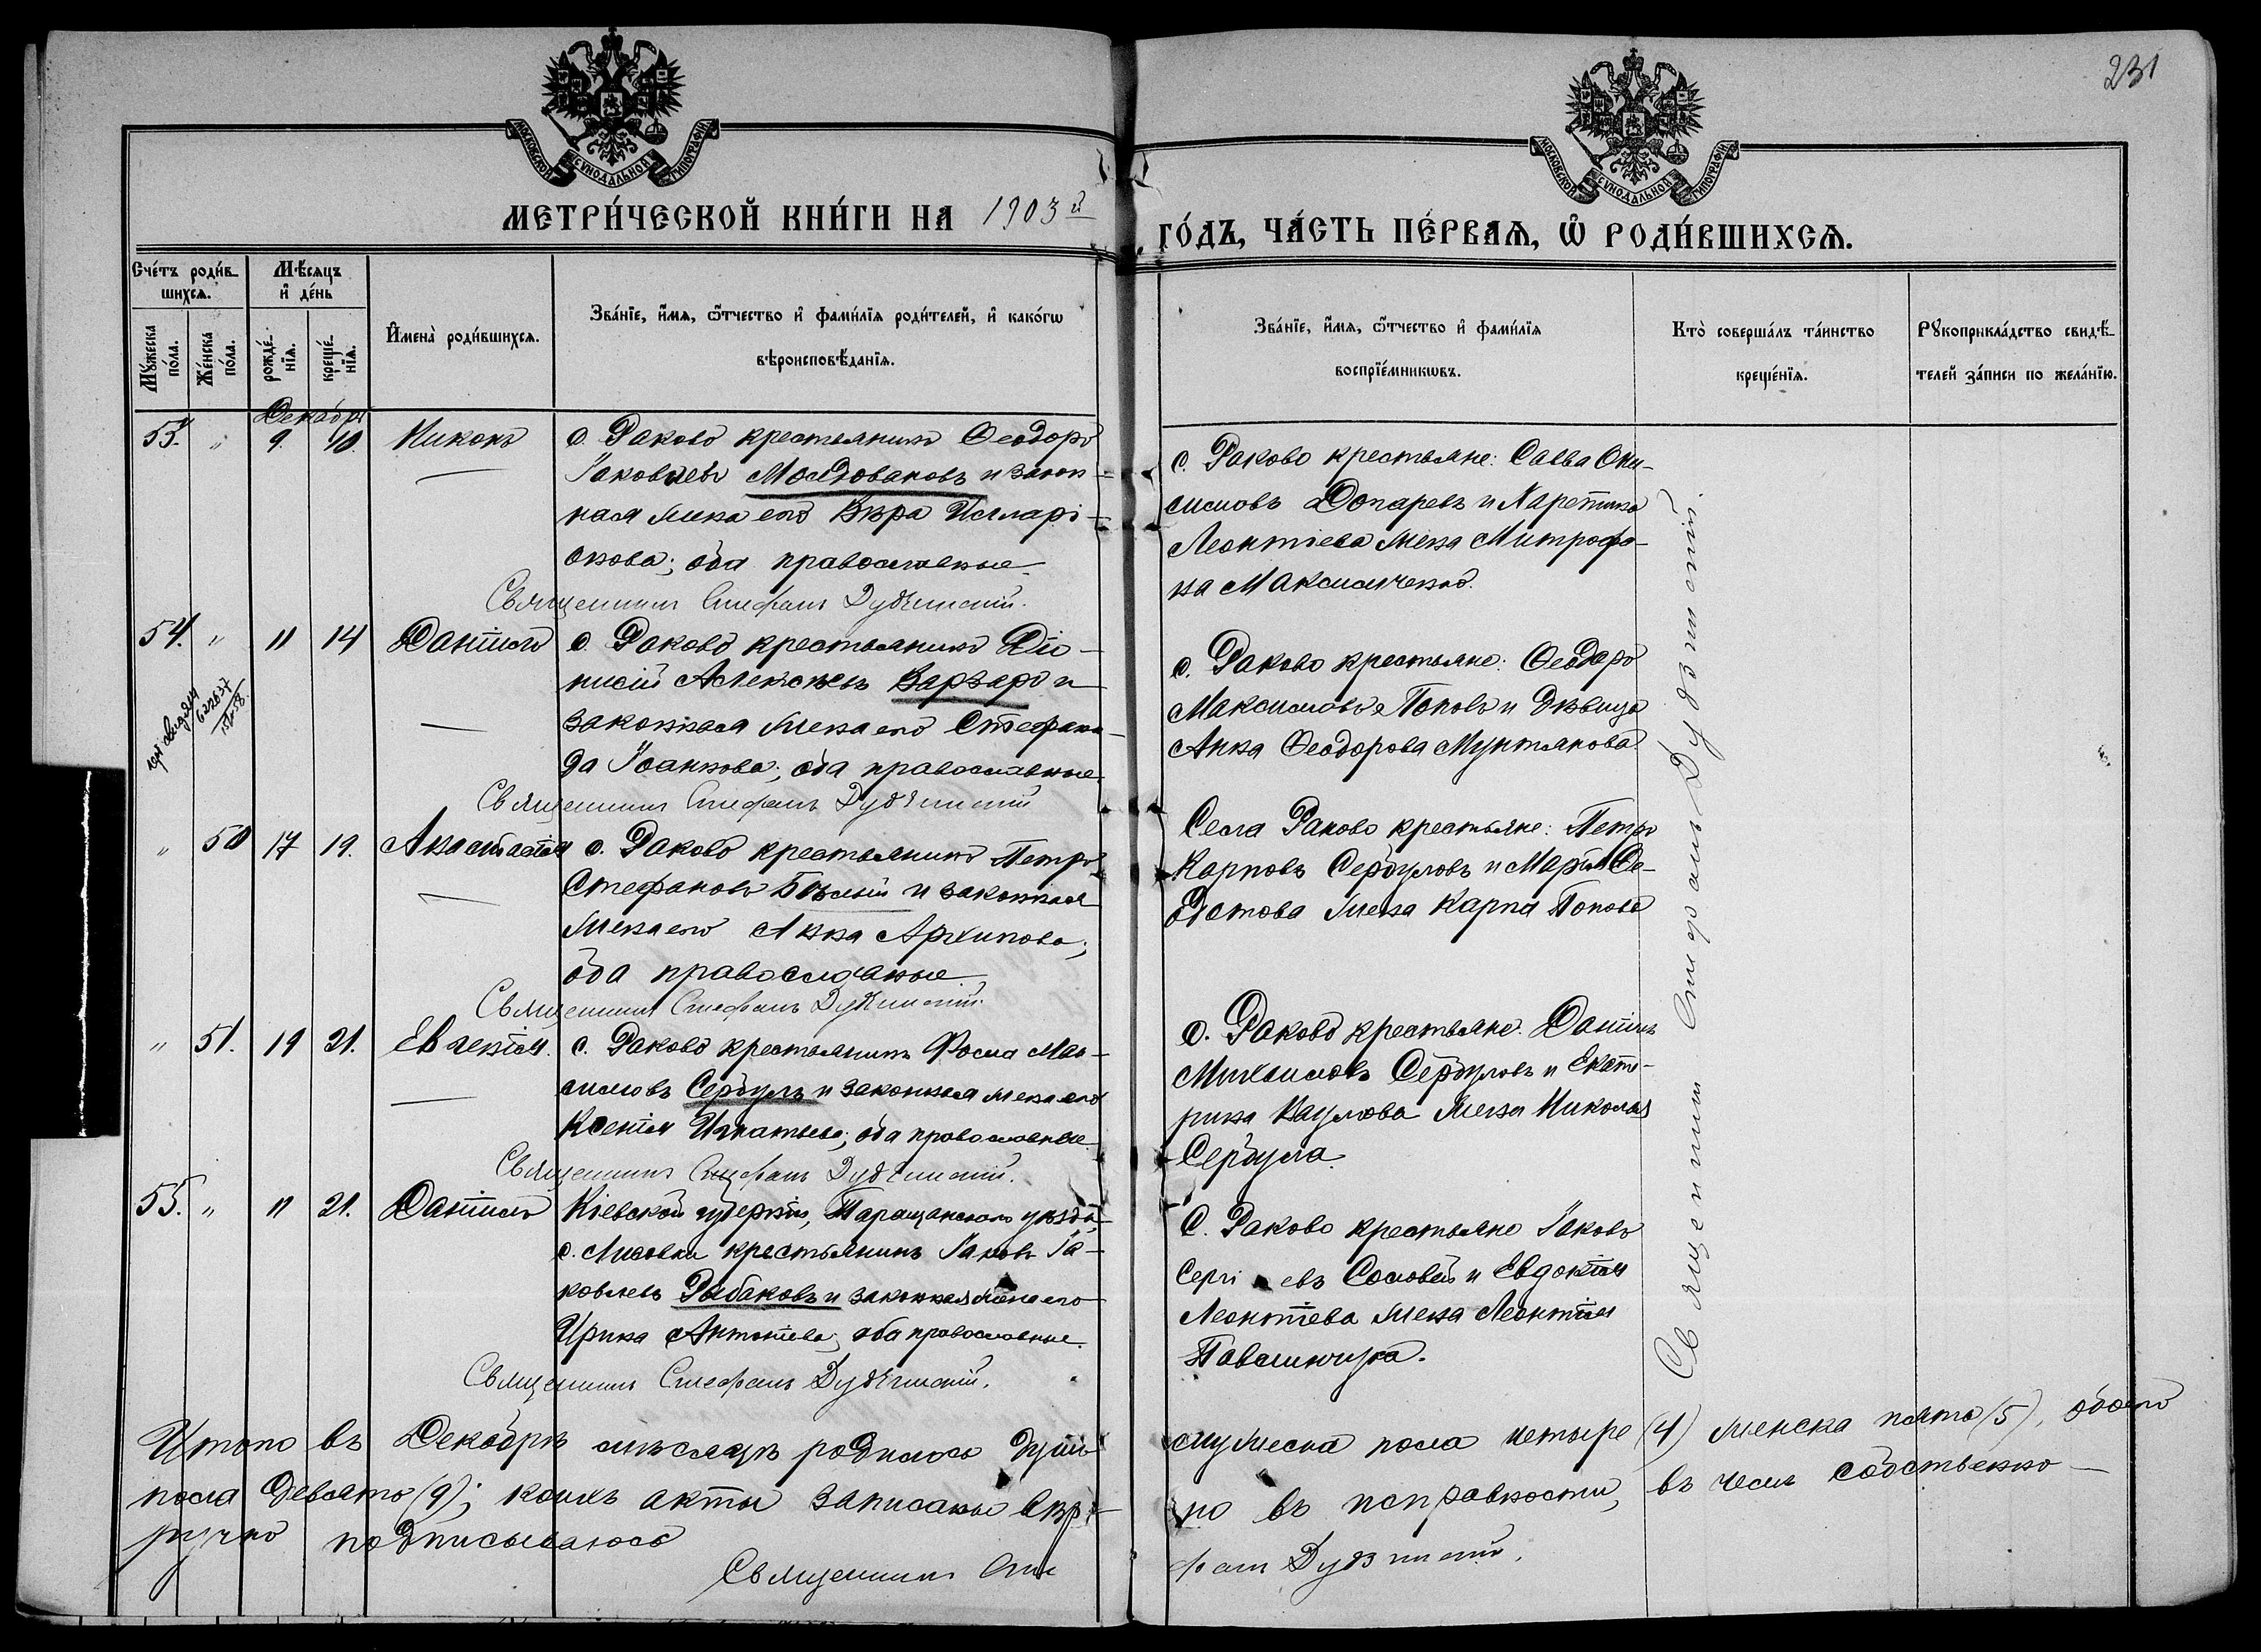 231
МОСКОВСКОЙ СѴНОДАЛЬНОЙ ТИПОГРАФІИ
МОСКОВСКОЙ СѴНОДАЛЬНОЙ ТИПОГРАФІИ
МЕТРИ́ЧЕСКОЙ КНИ́ГИ НА 1903й
ГО́ДЪ, ЧА́СТЬ ПЕ́РВАѦ, Ѡ҆ РОДИ́ВШИХСѦ.
Сче́тъ роди́в-
шихсѧ.
Мѣ́сѧцъ
и҆ де́нь
Мꙋ́жеска по́ла.
Же́нска по́ла.
рожде́-нїѧ.
креще́-нїѧ.
И҆мена̀ роди́вшихсѧ.
Зва́нїе, и҆́мѧ, ѻ҆́тчество и҆ фами́лїѧ роди́телей, и҆ како́гѡ
вѣроисповѣ́данїѧ.
Зва́нїе, и҆́мѧ, ѻ҆́тчество и҆ фами́лїѧ
воспрїе́мникѡвъ.
Кто̀ соверша́лъ та́инство
креще́нїѧ.
Рꙋкоприкла́дство свидѣ́-
телей за́писи по жела́нїю.
Декабря
53. " 9. 10. Никонъ
с. Раково крестьянинъ Ѳеодоръ
Іаковлевъ Молдовановъ и закон-
ная жена его Вѣра Илларі-
онова; оба православные.
Священникъ Стефанъ Дудзинскій.
с. Раково крестьяне: Савва Они-
симовъ Допаревъ и Харетина
Леонтіева жена Митрофа-
на Максимченко.
54. " 11 14 Даніилъ
с. Раково крестьянинъ Діо-
нисій Алексѣевъ Варзаръ и
законная жена его Стефани-
да Іоаннова; оба православные.
Священникъ Стефанъ Дудзинскій
с. Раково крестьяне: Ѳеодоръ
Максимовъ Поповъ и дѣвица
Анна Ѳеодорова Мунтянова.
" 50 17 19. Анастасія
с. Раково крестьянинъ Петръ
Стефановъ Бѣлый и законная
жена его Анна Архипова;
оба православные.
Священникъ Стефанъ Дудзинскій.
Села Раково крестьяне: Петръ
Карповъ Сербуловъ и Марія Ѳе-
одотова жена Карпа Попова
" 51. 19 21. Евгенія.
с. Раково крестьянинъ Ѳома Мак-
симовъ Сербулъ и законная жена его
Ксенія Игнатьева; оба православные.
Священникъ Стефанъ Дудзинскій.
с. Раково крестьяне: Даніилъ
Михаиловъ Сербуловъ и Екате-
рина жена Николая
Сербула.
55. " 11 21. Даніилъ
Кіевской губерніи, Таращанскаго уѣзда,
с. Лисовки крестьянинъ Іаковъ Іа-
ковлевъ Рыбаковъ и законная жена его
Ирина Антоніева; оба православные.
Священникъ Стефанъ Дудзинскій.
С. Раково крестьяне Іаковъ
Сергіевъ Соловей и Евдокія
Леонтіева жена Леонтія
Священникъ Стефанъ Дудзинскій.
Итого въ Декабрѣ мѣсяцѣ родилось душъ мужеска пола четыре (4) женска пять (5), обоего
пола девять (9); коихъ акты записаны вѣрно въ исправности, въ чемъ собственно-
ручно подписываюсь
Священникъ Стефанъ Дудзинскій.